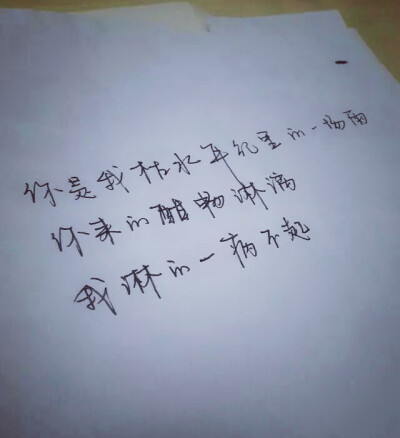 你是我枯水年纪里的一场雨
你来的酣畅淋漓
我淋的一病不起